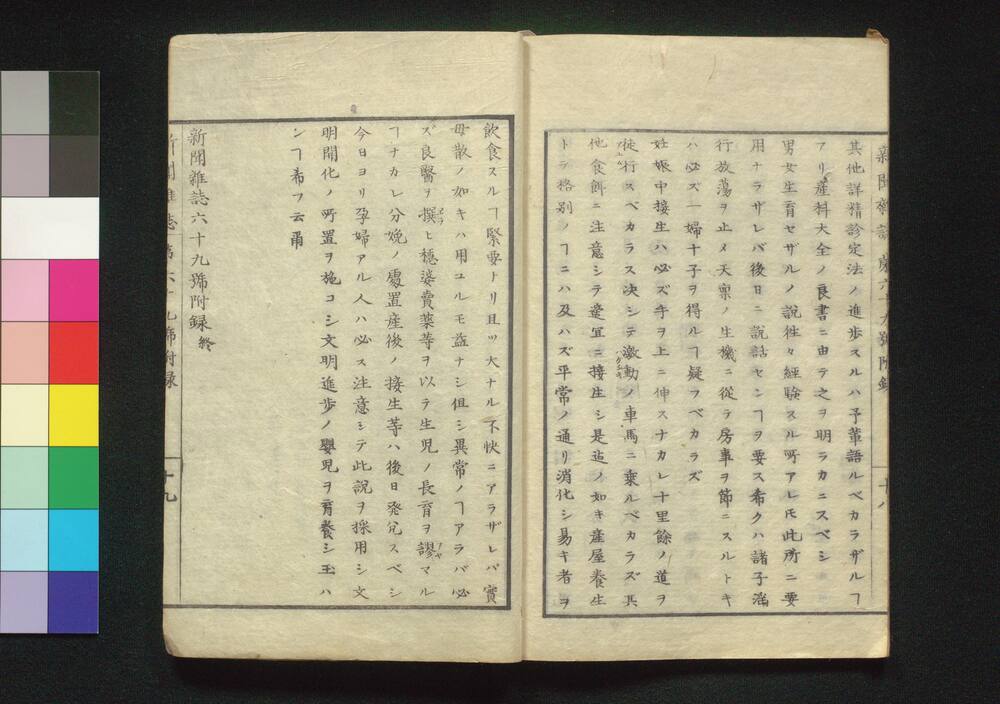 新聞雑誌 第六十九號附録 十八
其他詳猜診定法ノ進歩スルハ予輩語ルベカラザルヿ
アリ産科大全ノ良書ニ由テ之ヲ明ラカニスベシ
男女生育セザルノ説徃々經驗スル所アレ𪜈此所ニ要
用ナラザレバ後日ニ説話センヿヲ要ス希クハ諸子淫
行放蕩ヲ止メ天稟ノ生機ニ從ヲ房事ヲ節ニスルトキ
ハ必ズ一婦十子ヲ得ルヿ疑フベカラズ
妊娠中接生ハ必ズ手ヲ上ニ伸スナカレ十里餘ノ道ヲ
徒行スベカラス决シテ激動ノ車馬ニ乗ルベカラズ其
他食餌ニ注意シテ適宜ニ接生シ是迠ノ如キ産屋養生
トテ格別ノヿニハ及ハズ平常ノ通リ消化シ易キ者ヲ
飲食スルヿ緊要トリ且ツ大ナル不快ニアラザレバ實
母散ノ如キハ用ユルモ益ナシ但シ異常ノヿアラバ必
ズ良醫ヲ撰ヒ穏婆賣薬等ヲ以テ生児ノ長育ヲ謬マル
ヿナカレ分娩ノ處置産後ノ接生等ハ後日発兌スベシ
今日ヨリ孕婦アル人ハ必ス注意シテ此説ヲ採用シ文
明開化ノ所置ヲ施コシ文明進歩ノ嬰児ヲ育養シ玉ハ
ンヿ希フ云爾
新聞雜誌六十九號附録終
新聞雑誌 第六十九號附録 十九